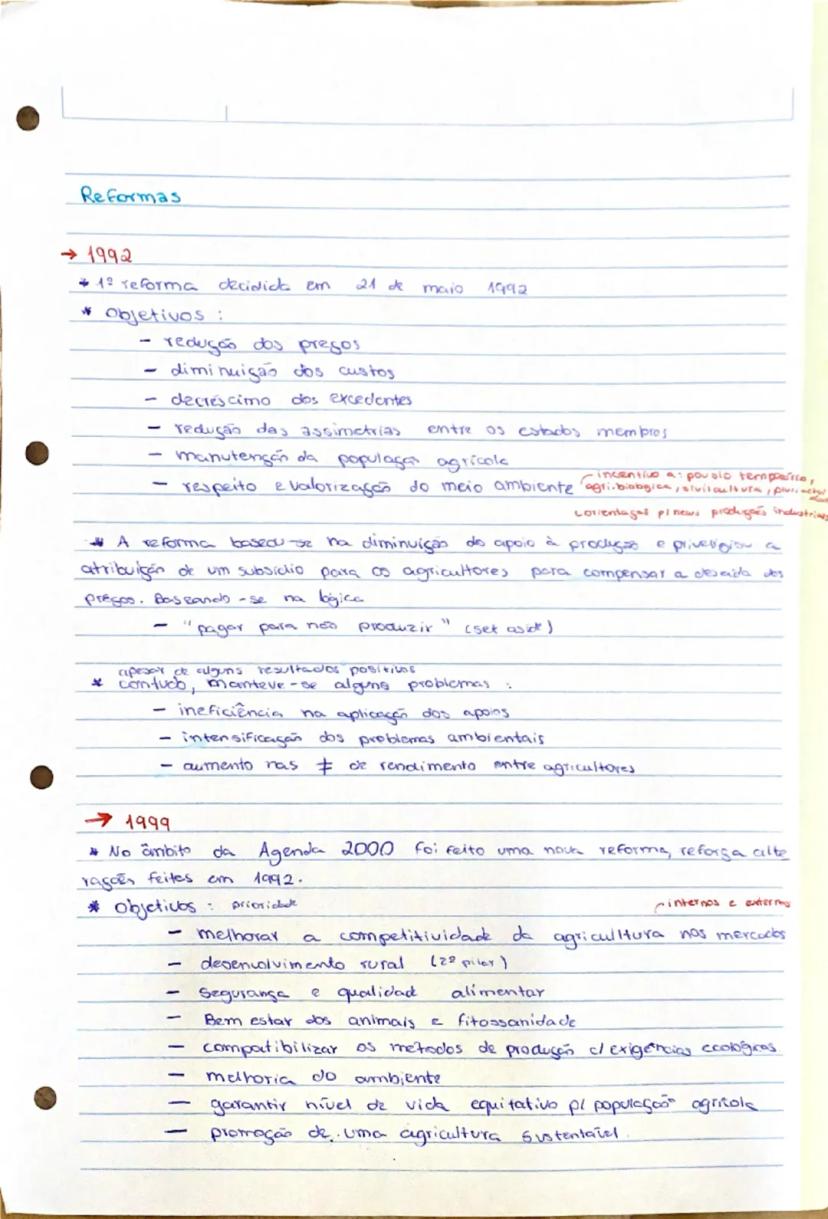 Reformas
→ 1992
* 1º reforma decidida em 21 de maio 1992
* Objetivos :
- redução dos preços
- diminuição dos custos
- decréscimo dos excedentes
- redução das assimetrias entre os estados membros
- manutenção da população agrícola
- respeito e valorização do meio ambiente
incentivo a: pousio temporário,
agri.biologica, silvicultura,
orientaças p/ novas produções industriais
* A reforma baseou-se na diminuição do apoio à produção e privelegiou a
atribuição de um subsídio para os agricultores para compensar a descida dos
preços. Baseando-se na lógica
- "pagar para não produzir" (set aside)
apesar de alguns resultados positivos
* contudo, manteve-se alguns problemas :
- ineficiência na aplicação dos apoios
- intensificação dos problemas ambientais
- aumento nas ≠ de rendimento entre agricultores
→ 1999
* No âmbito da Agenda 2000 foi feito uma nova reforma, reforça alte
rações feitas em 1992.
* Objetivos : prioridade
internos e externos
- melhorar a competitividade da agricultura nos mercados
- desenvolvimento rural (2º pilar)
- Segurança e qualidad alimentar
- Bem estar dos animais e fitossanidade
- compatibilizar os métodos de produção c/ exigências ecológicas
- melhoria do ambiente
- garantir nível de vida equitativo p/ população agrícola
- promoção de uma agricultura sustentável.